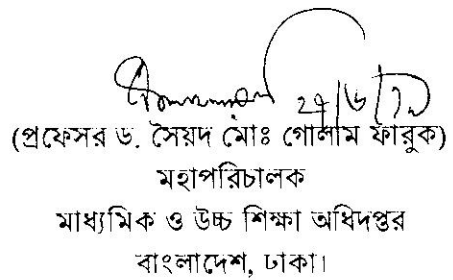 (প্রফেসর ড. সৈয়দ মোঃ গোলাম ফারুক)
মহাপরিচালক
মাধ্যমিক ও উচ্চ শিক্ষা অধিদপ্তর
বাংলাদেশ, ঢাকা।